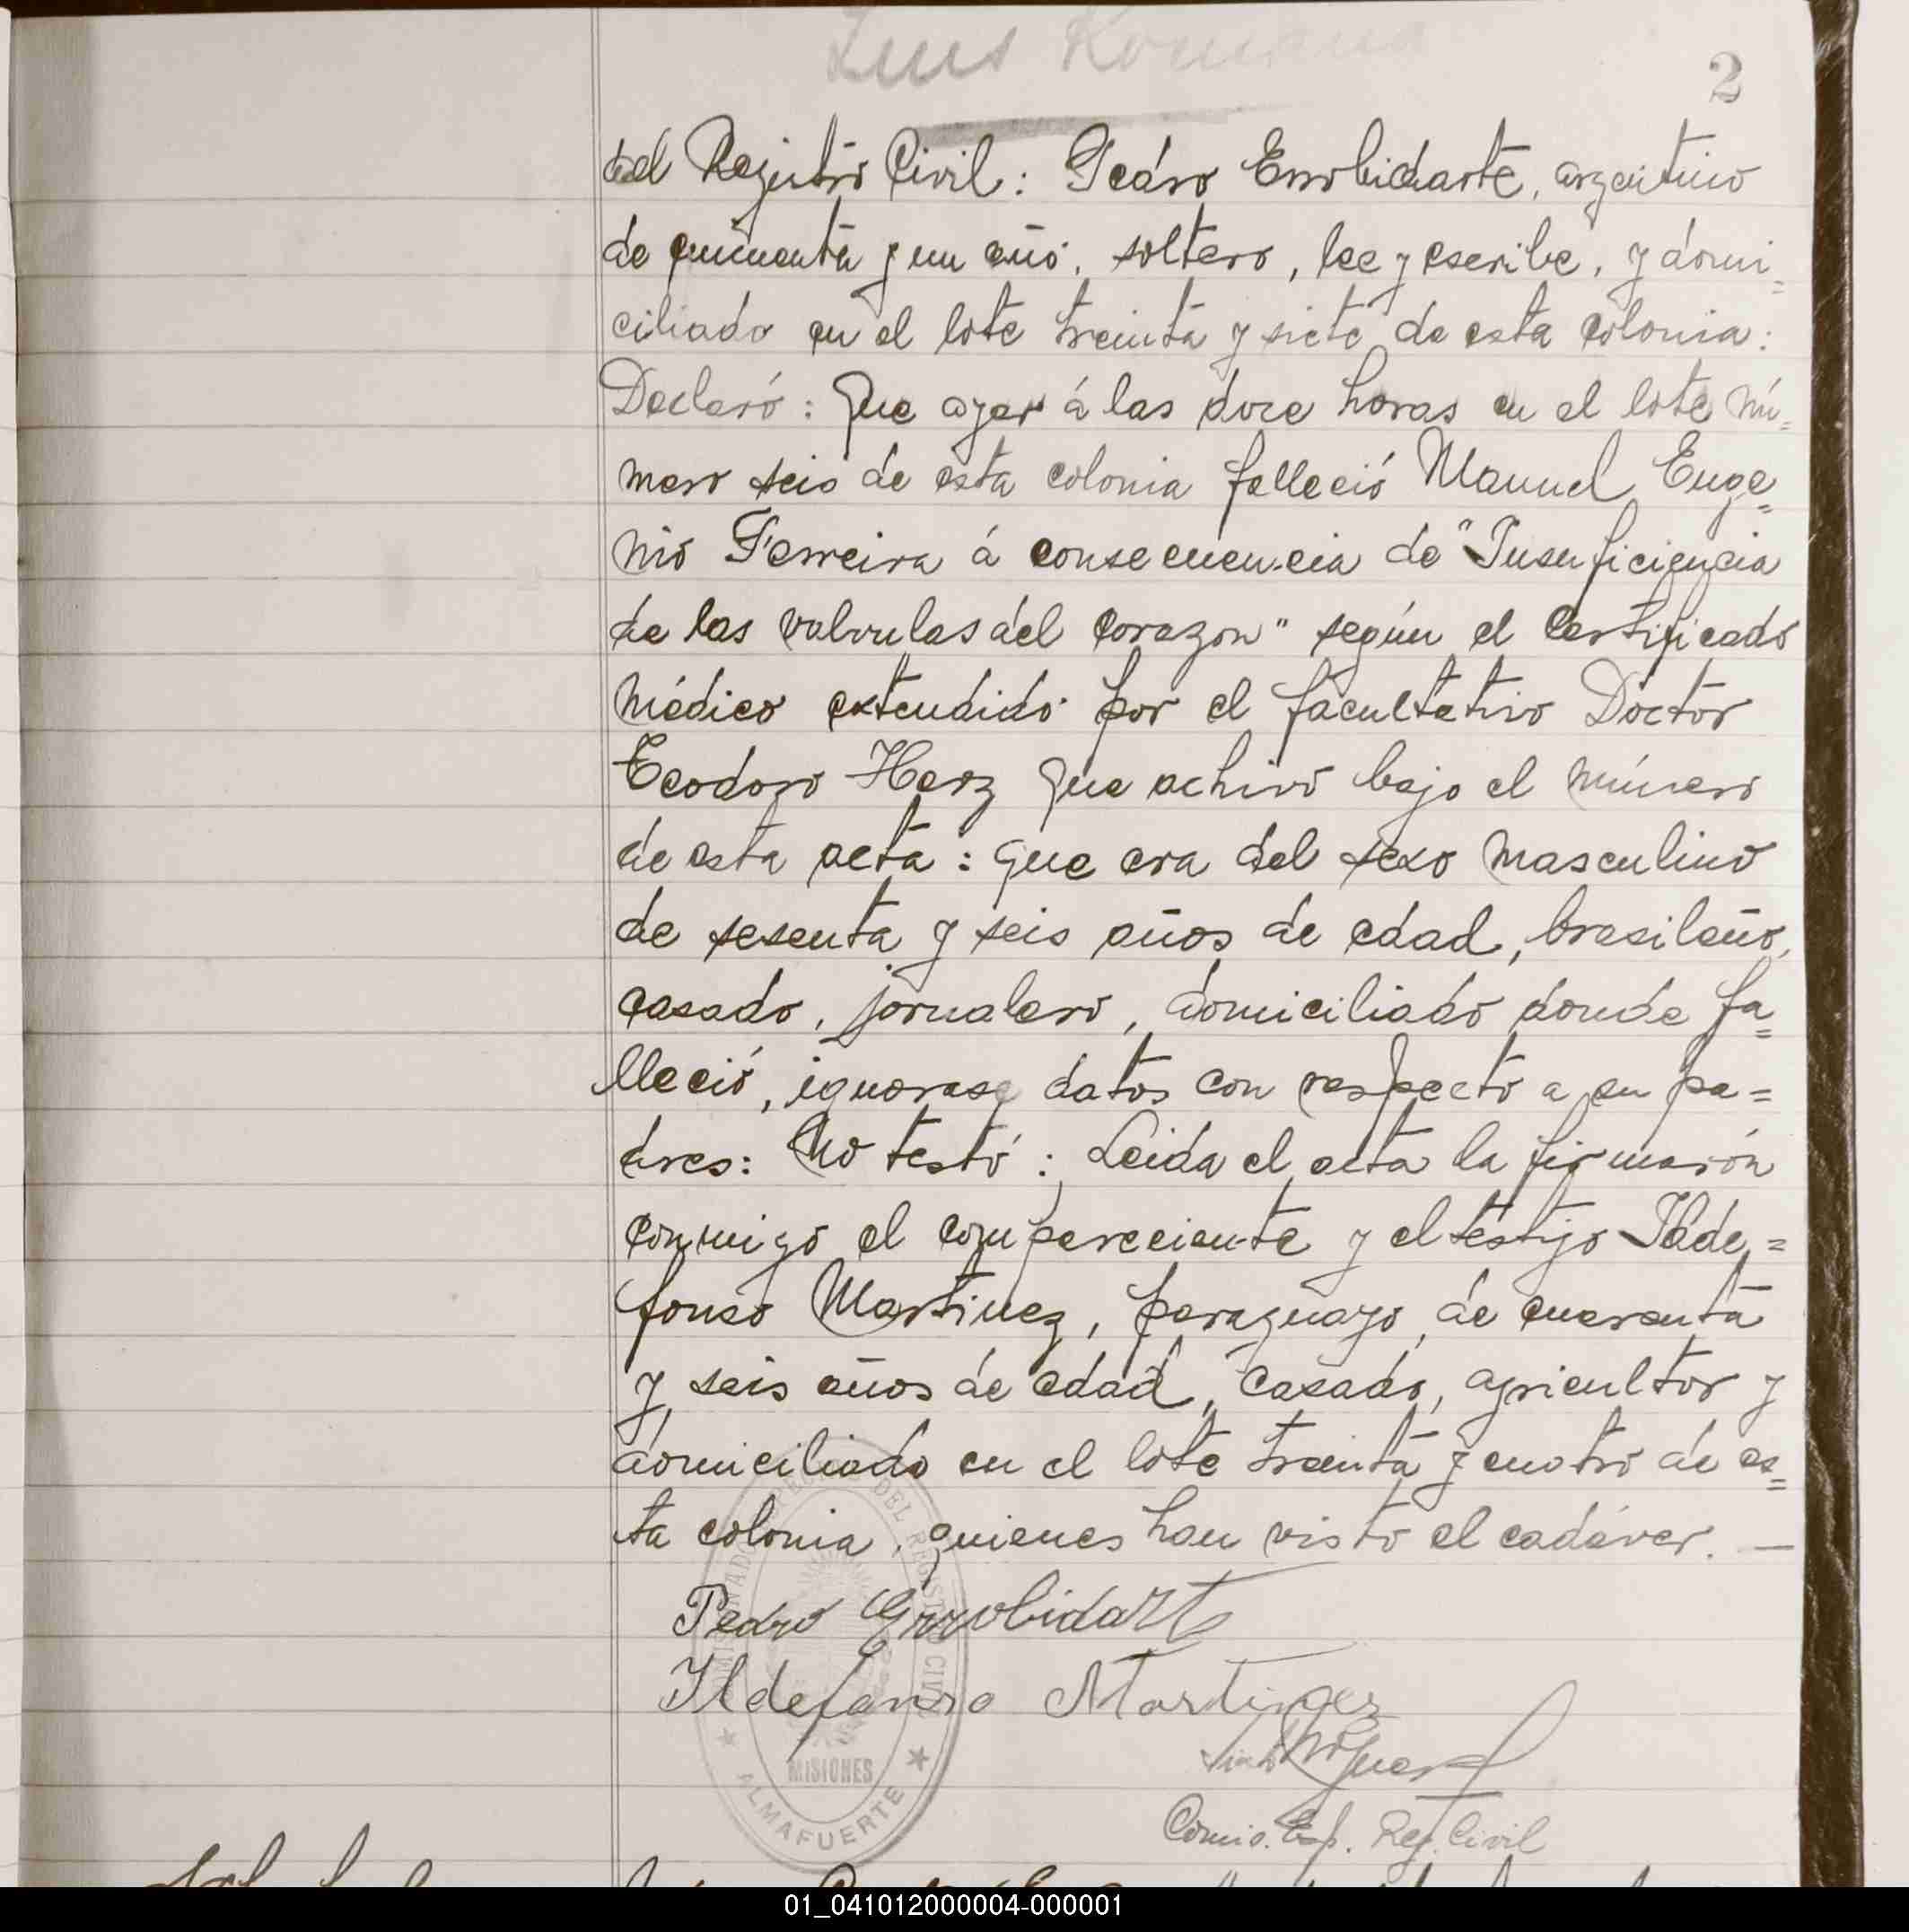 Luis
2
del Registro Civil: Pedro Errobidarte, argentino
de cincuenta y un año, soltero, lee y escribe, y domi=
ciliado en el lote treinta y siete de esta colonia:
Declaró: Que ayer á las doce horas en el lote nú=
mero seis de esta colonia falleció Manuel Euge=
nio Ferreira á consecuencia de "Insuficiencia
de las valvulas del corazon" según el certificado
médico extendido por el facultativo Doctor
Teodoro Herz que achivo bajo el número
de esta acta: que era del sexo masculino
de sesenta y seis años de edad, brasileño,
casado, jornalero, domiciliado donde fa=
lleció, ignorase datos con respecto a su pa=
dres: No testó: Leida el acta la firmarón
conmigo el compareciente y el testijo Ilde=
fonso Martinez, paraguayo, de cuarenta
y seis años de edad, casado, agricultor y
domiciliado en el lote treinta y cuatro de es=
ta colonia, quienes han visto el cadáver. —
Pedro Errobidarte
Ildefonso Martinez
Comis. Esp. Reg. Civil
DEL REGISTRO CIVIL
MISIONES
ALMAFUERTE
01_041012000004-000001